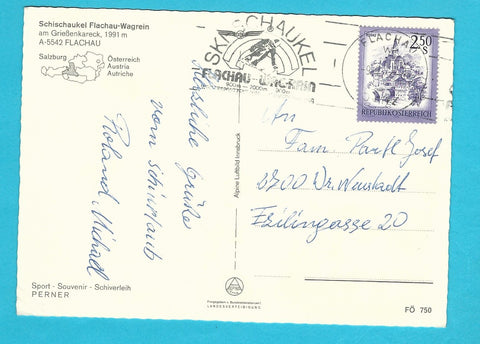 Schischaukel Flachau-Wagrein
am Grießenkareck, 1991 m
A-5542 FLACHAU
Salzburg
Österreich
Austria
Autriche
Herzliche Grüße
vom Schiurlaub
Roland, Michael
Sport · Souvenir · Schiverleih
PERNER
Alpine Luftbild Innsbruck
Freigegeben v. Bundesministerium f.
LANDESVERTEIDIGUNG
SKISCHAUKEL
FLACHAU - WAGRAIN
900m 2000m
FLACHAU
2.50
S
REPUBLIK ÖSTERREICH
An
Fam. Josef
2700 Wr. Neustadt
20
FÖ 750